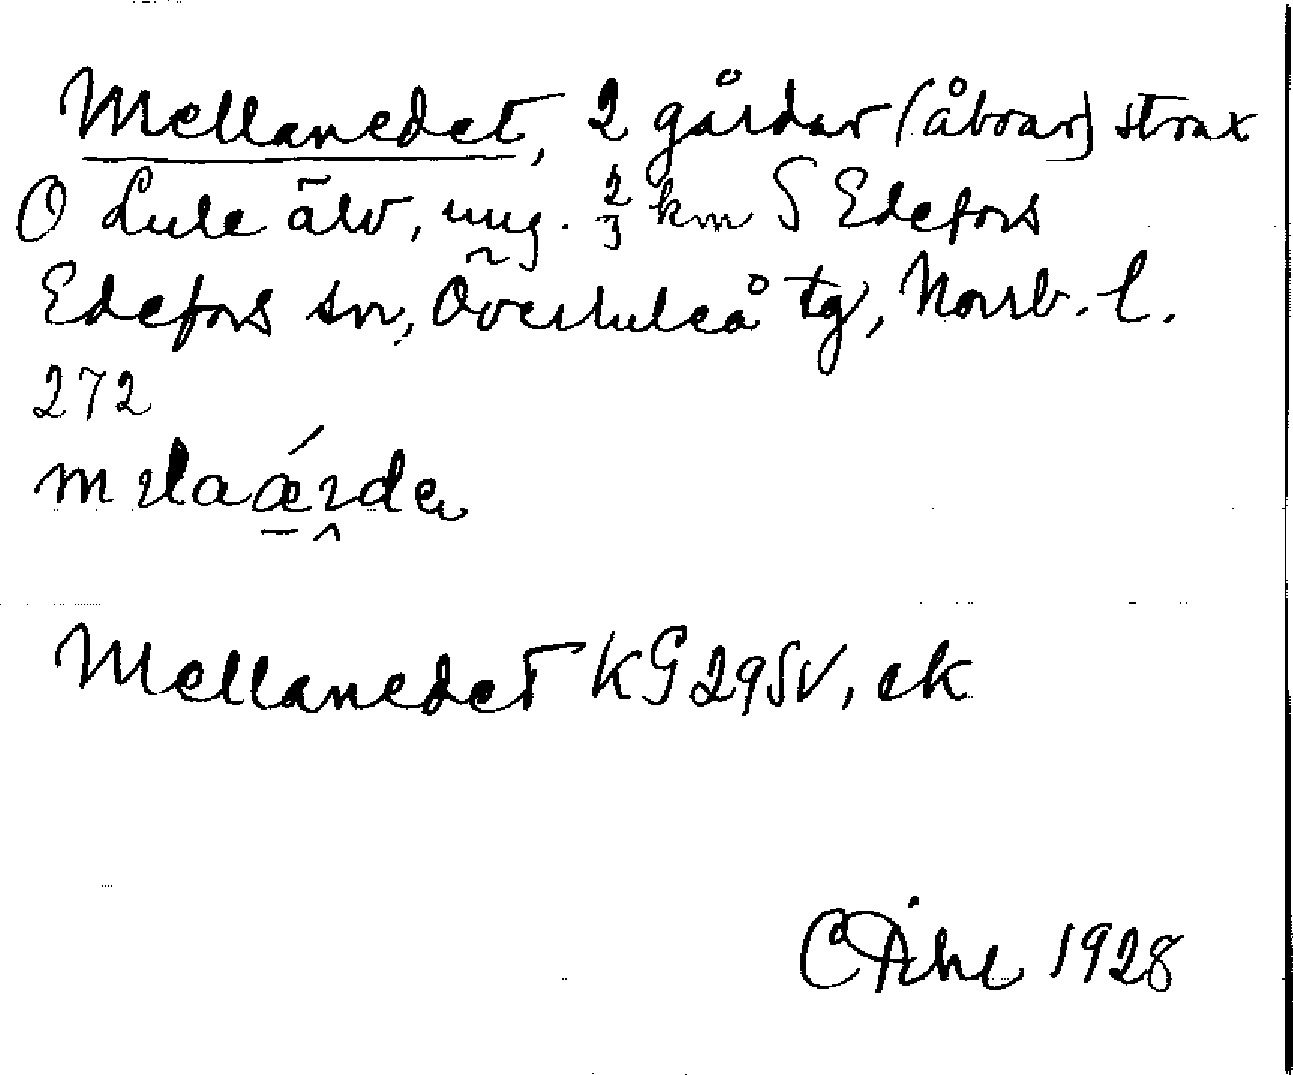 Mellanedet, 2 gårdar (åboar) strax
O Lule älv, ung. 2/3 km S Edefors
Edefors sn, Överluleå tg, Norrb. l.
272
Mellanedet KG 29SV, ek
1928